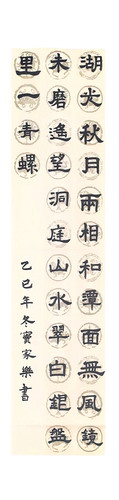 湖光秋月兩相和潭面無風鏡
未磨遙望洞庭山水翠白銀盤
里一青螺
乙巳年冬竇家樂書